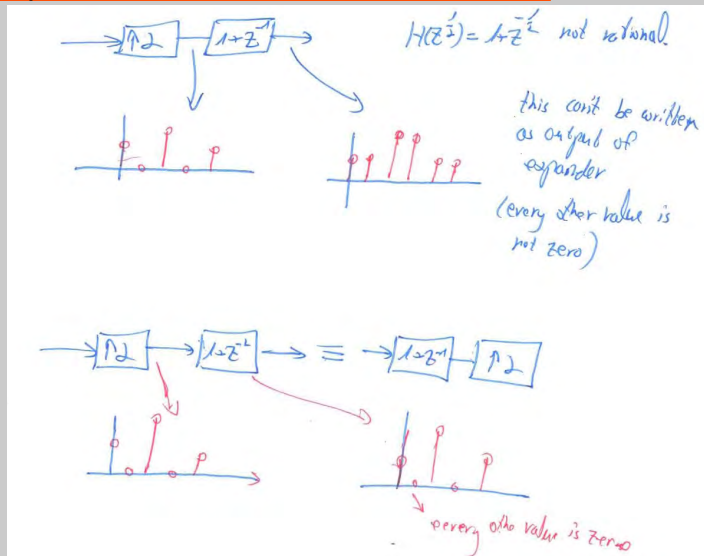 ↑2
1+z⁻¹
H(z^½) = 1+z^-½ not rational.
this can't be written
as output of
expander
(every other value is
not zero)
↑2
1+z⁻²
≡
1+z⁻¹
↑2
every other value is zero